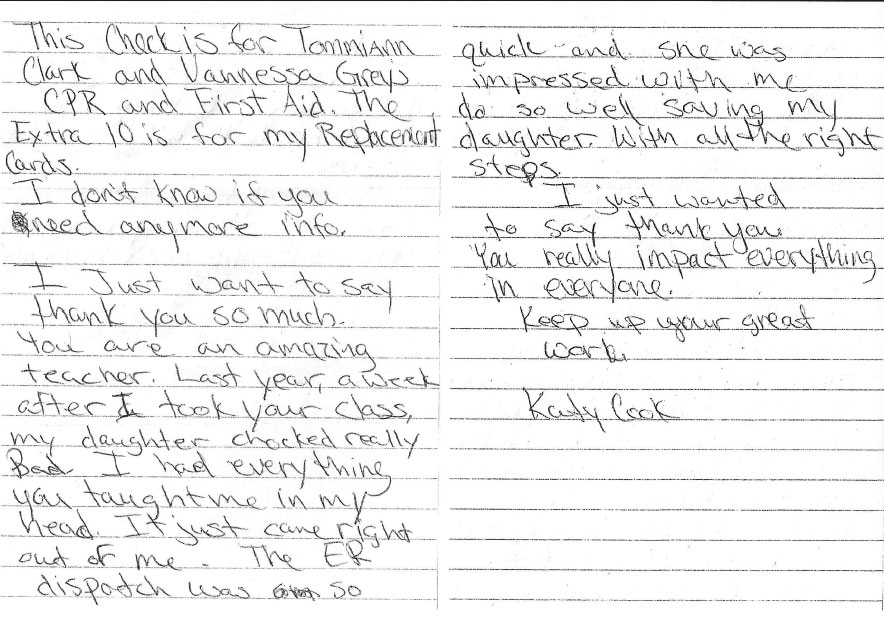 This Check is for Tommiann
Clark and Vannessa Greys
CPR and First Aid. The
Extra 10 is for my Replacement
Cards.
I don't know if you
need anymore info.
I Just want to say
thank you so much.
You are an amazing
teacher. Last year, a week
after I took your class,
my daughter chocked really
Bad I had everything
you taught me in my
head. It just came right
out of me. The ER
dispatch was so
quick and she was
impressed with me
do so well saving my
daughter. With all the right
steps.
I just wanted
to say thank you
You really impact everything
in everyone.
Keep up your great
work.
Katy Cook